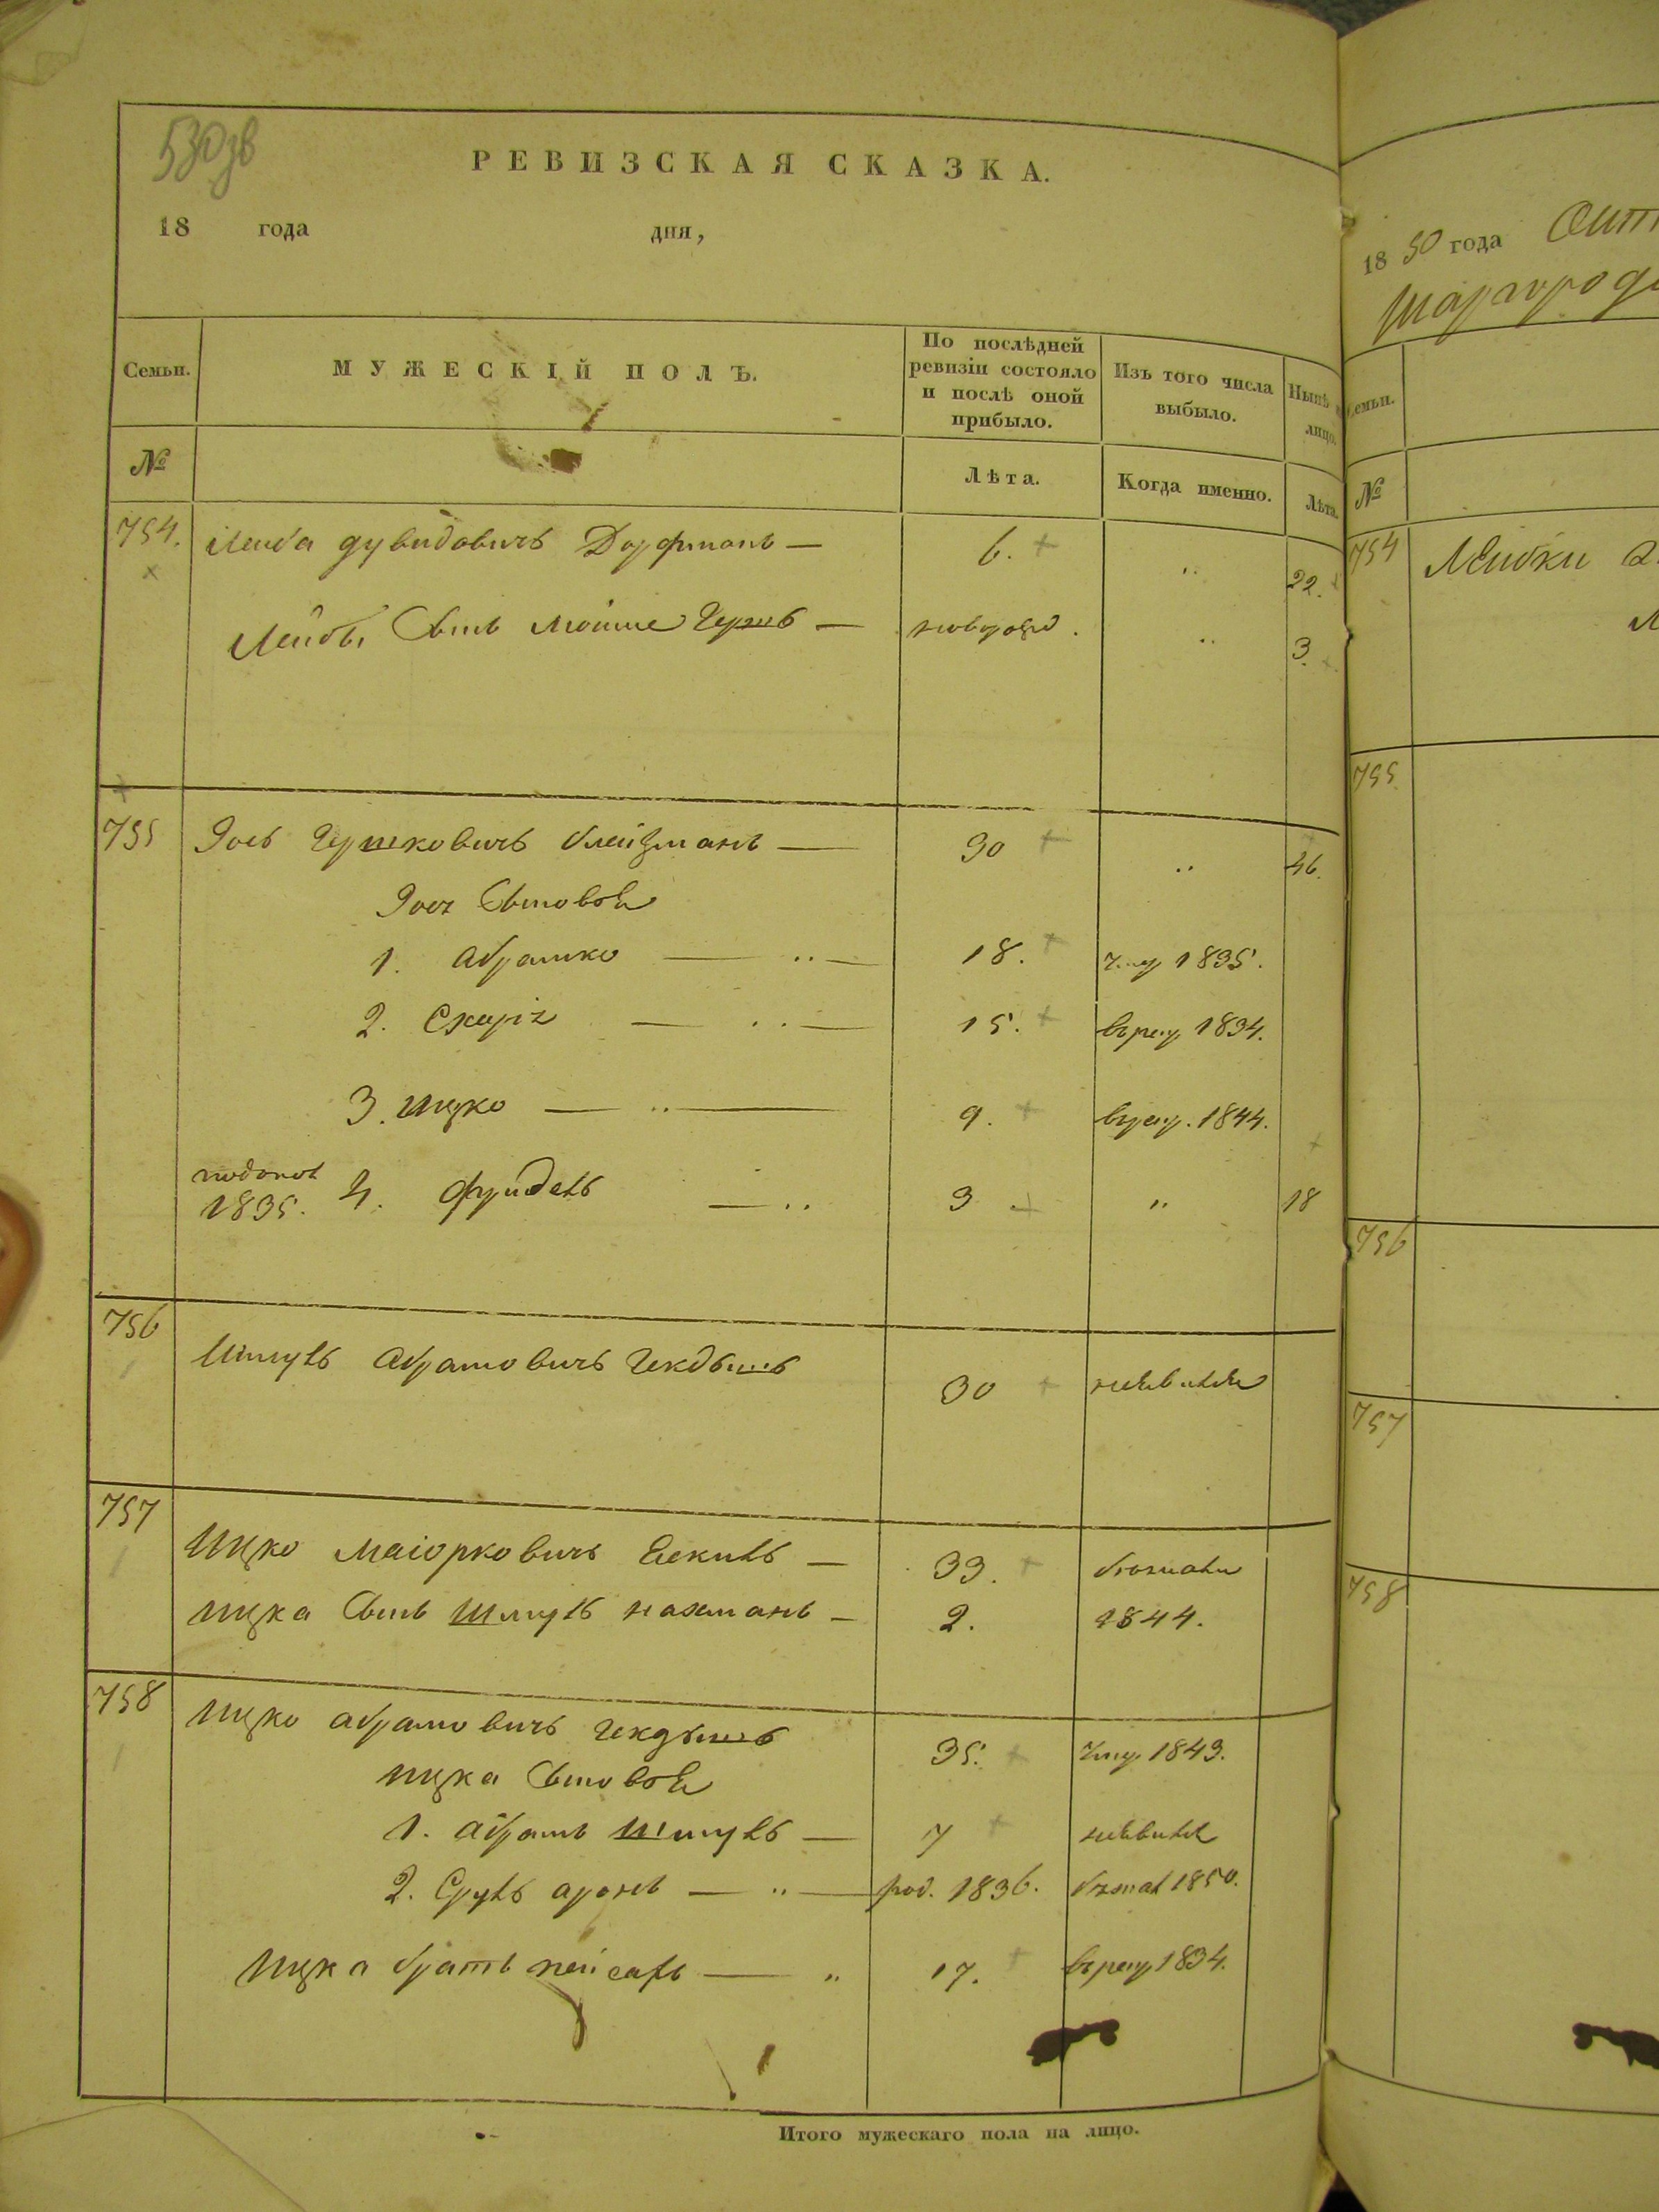 530зв
РЕВИЗСКАЯ СКАЗКА.
18 года дня,
Семьи. МУЖЕСКІЙ ПОЛЪ. По послѣдней ревизіи состояло и послѣ оной прибыло. Изъ того числа выбыло. Нынѣ лицо.
№ Лѣта. Когда именно. Лѣта.
754. Лейба Дувидовичъ Дорфманъ — 6. 22.
Лейбы Сынъ Мойше Гершъ — новорож. 3.
755 Іось Гершковичъ Клейзманъ — 30 46.
Іося Сыновья
1. Абрамко — 18. ум. 1835.
2. Схарія — 15. въ рекр. 1834.
3. Ицко — 9. въ рекр. 1844.
1835. 4. Фридель — 3 18
756 Шмуль Абрамовичъ Гекдышъ 30
757 Ицко Маіорковичъ — 33.
Ицка Сынъ Шмуль Нахманъ — 2. 1844.
758 Ицко Абрамовичъ Гекдышъ 35. ум. 1843.
Ицка Сыновья
1. Абрамъ Шмуль — 7
2. Сруль Аронъ — род. 1836. 1850.
Ицка братъ Пейсахъ — 17. въ рекр. 1834.
Итого мужескаго пола на лицо.
18 50 года
Шаргород
Семьи.
№
754 Лейбки
755
756
757
758